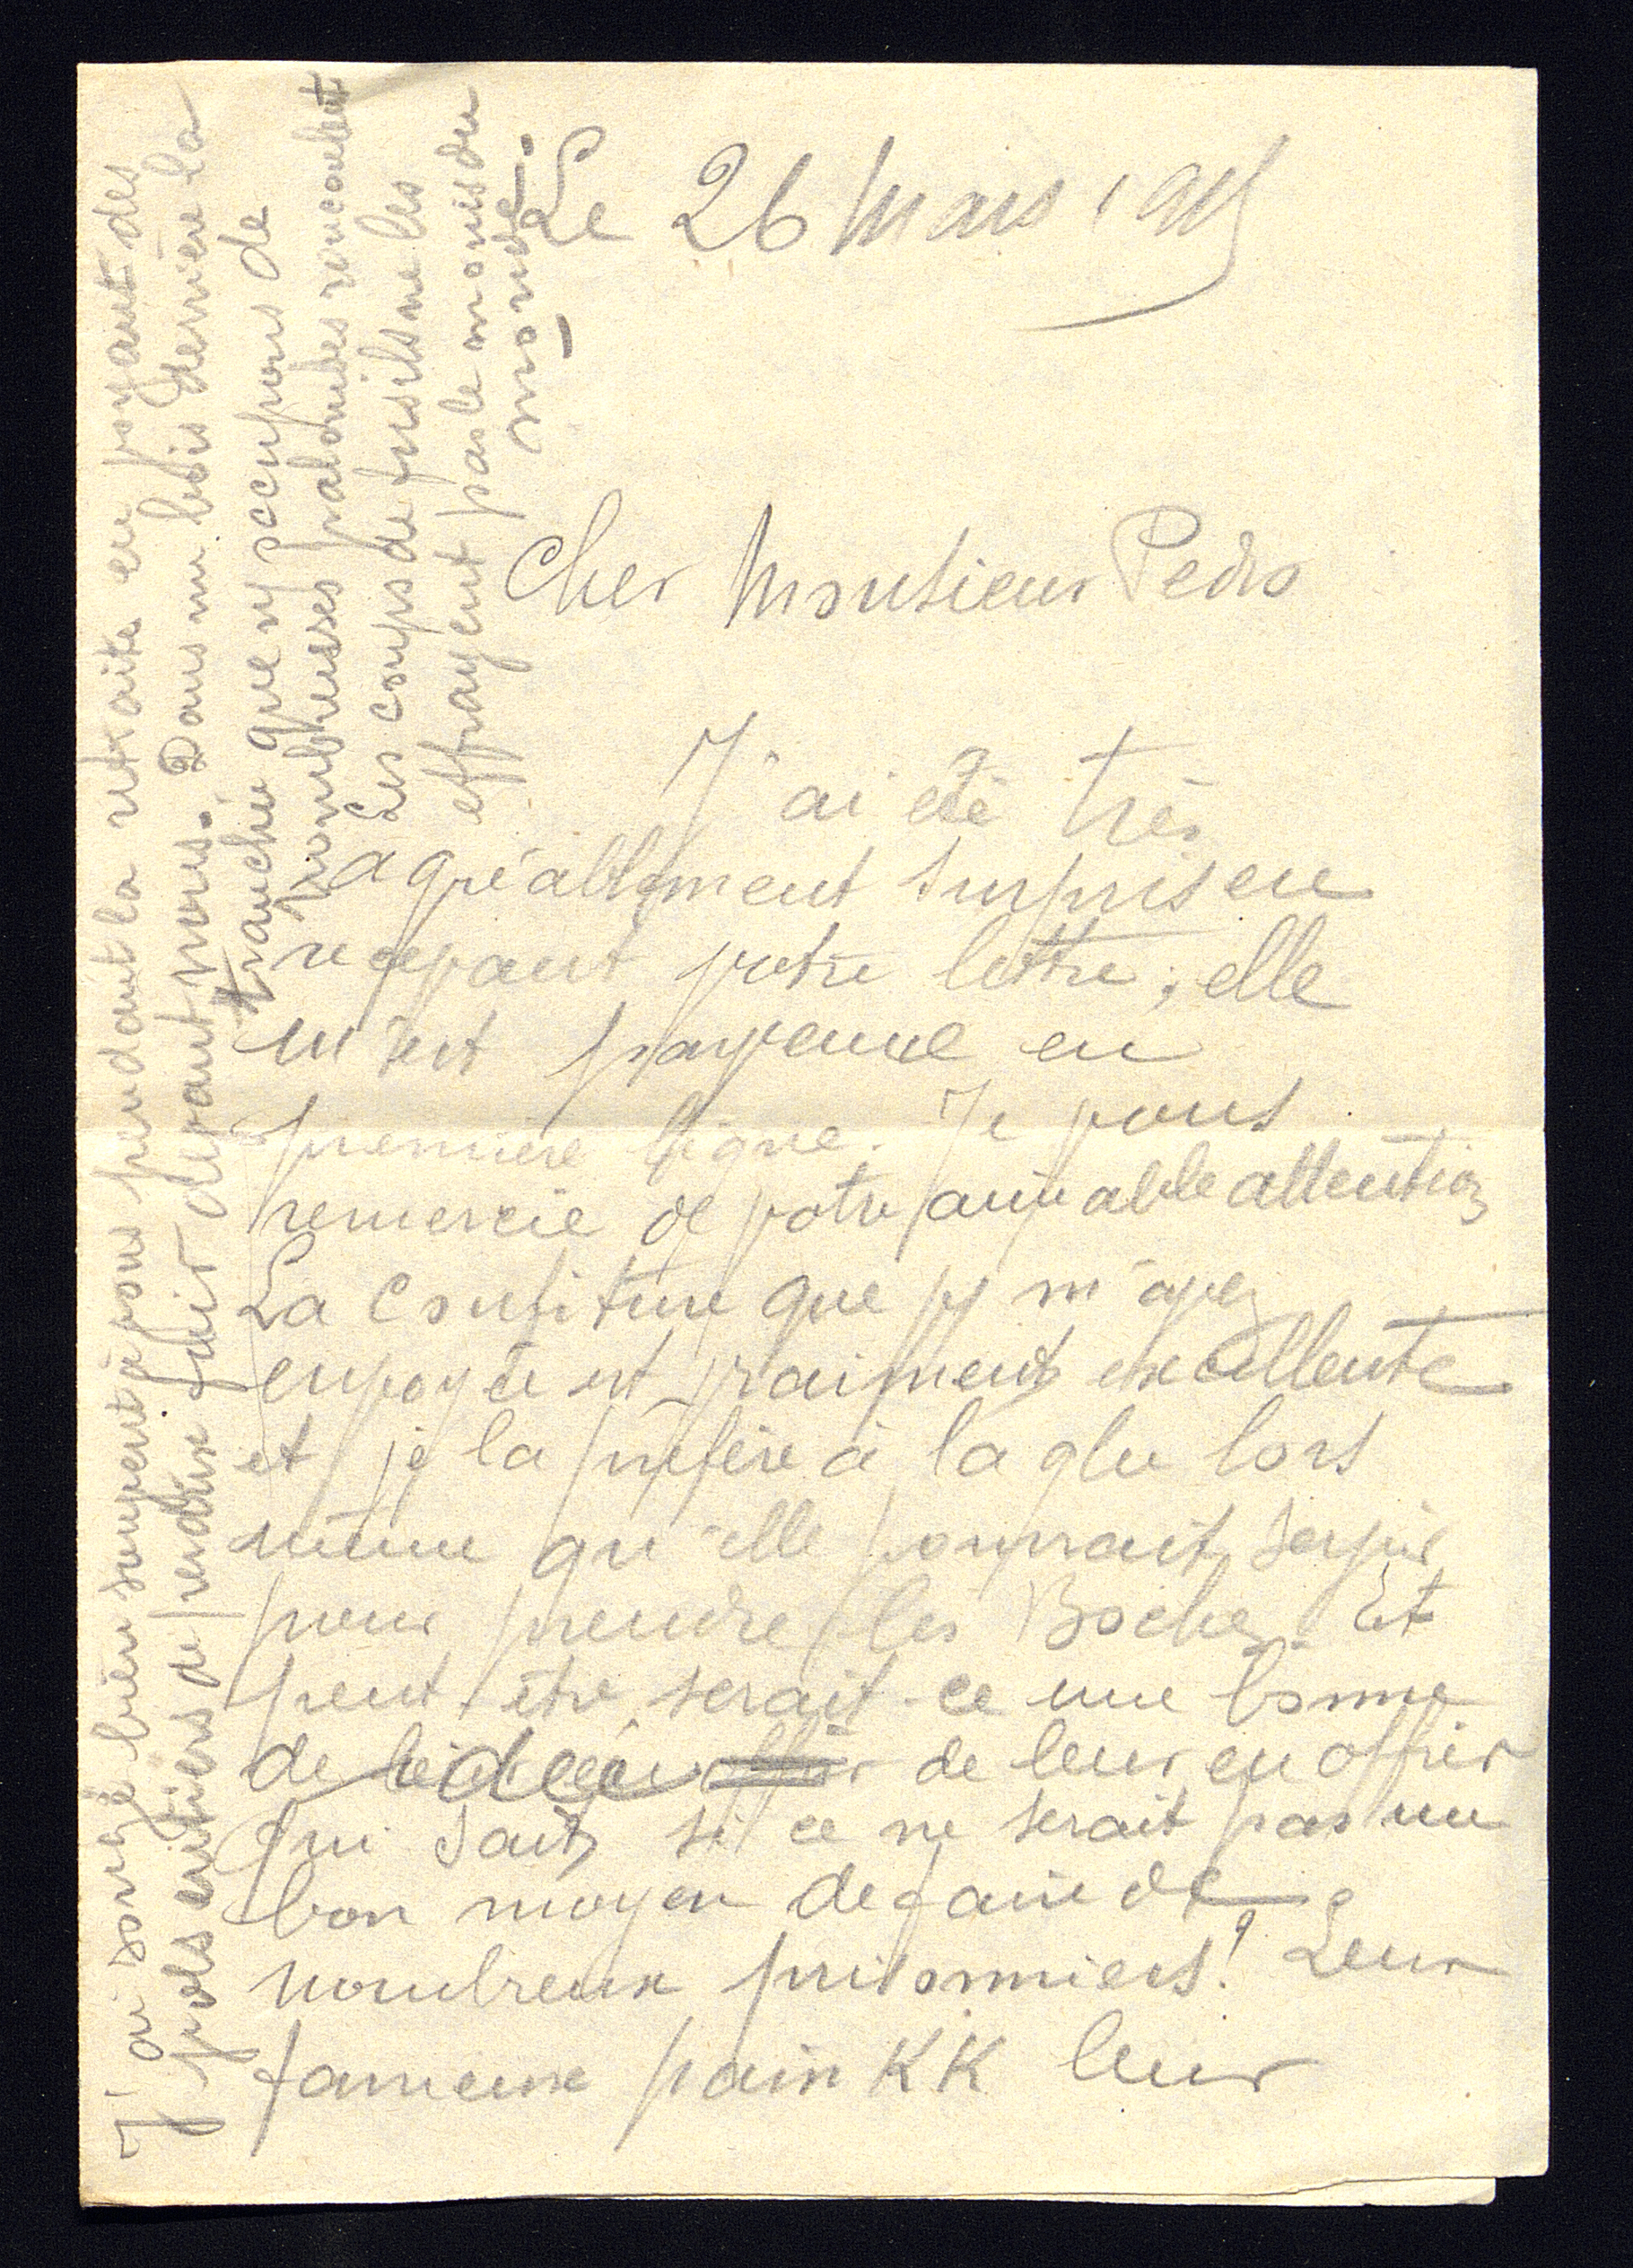 Le 26 Mars 1915
Cher Monsieur Pedro
J'ai été très
agréablement surpris en
recevant votre lettre ; elle
m'est parvenue en
première ligne. Je vous
remercie de votre aimable attention
La confiture que vs m'avez
envoyée est vraiment excellente
et je la préfère à la glu lors
même qu'elle pourrait servir
pour prendre les Boches. Et
peut-être serait-ce une bonne
de idée de leur en offrir
Qui sait si ce ne serait pas un
bon moyen de faire de
nombreux prisonniers! Leur
fameux pain KK leur
J'ai songé bien souvent à vous pendant la retraite en voyant des
vols entiers de perdrix fuir devant nous. Dans un bois derrière la
tranchée que ns occupons de
nombreuses palombes roucoulent
Les coups de fusils ne les
effrayent pas le moins du
monde.